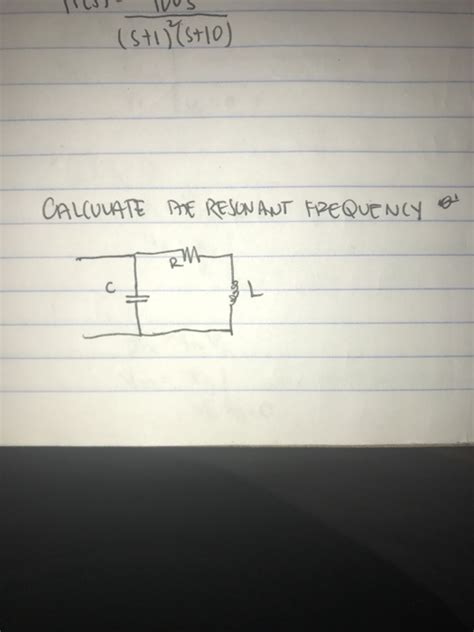 100s
(s+1)²(s+10)
CALCULATE THE RESONANT FREQUENCY
R
C
L